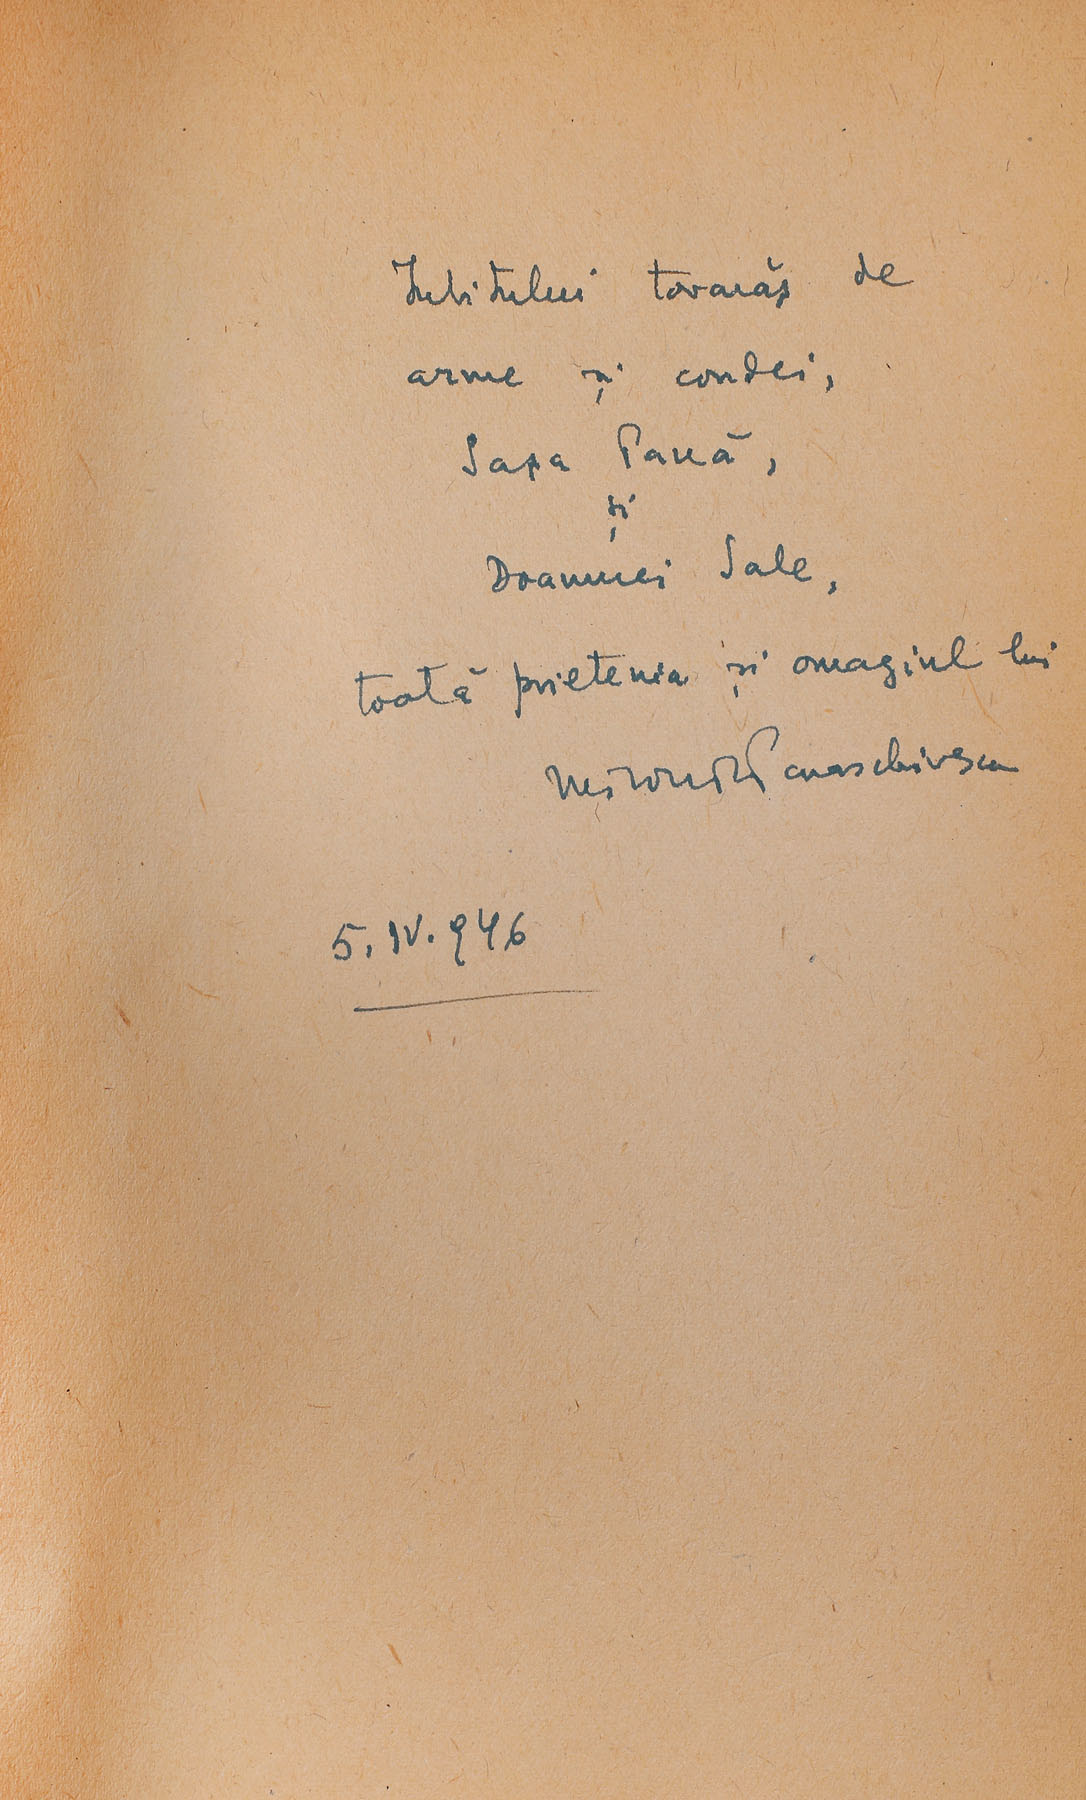 Iubitului tovarăș de
arme și condei,
Sașa Pană,
și
Doamnei Sale,
toată prietenia și omagiul lui
Miron R Paraschivescu
5. IV. 946